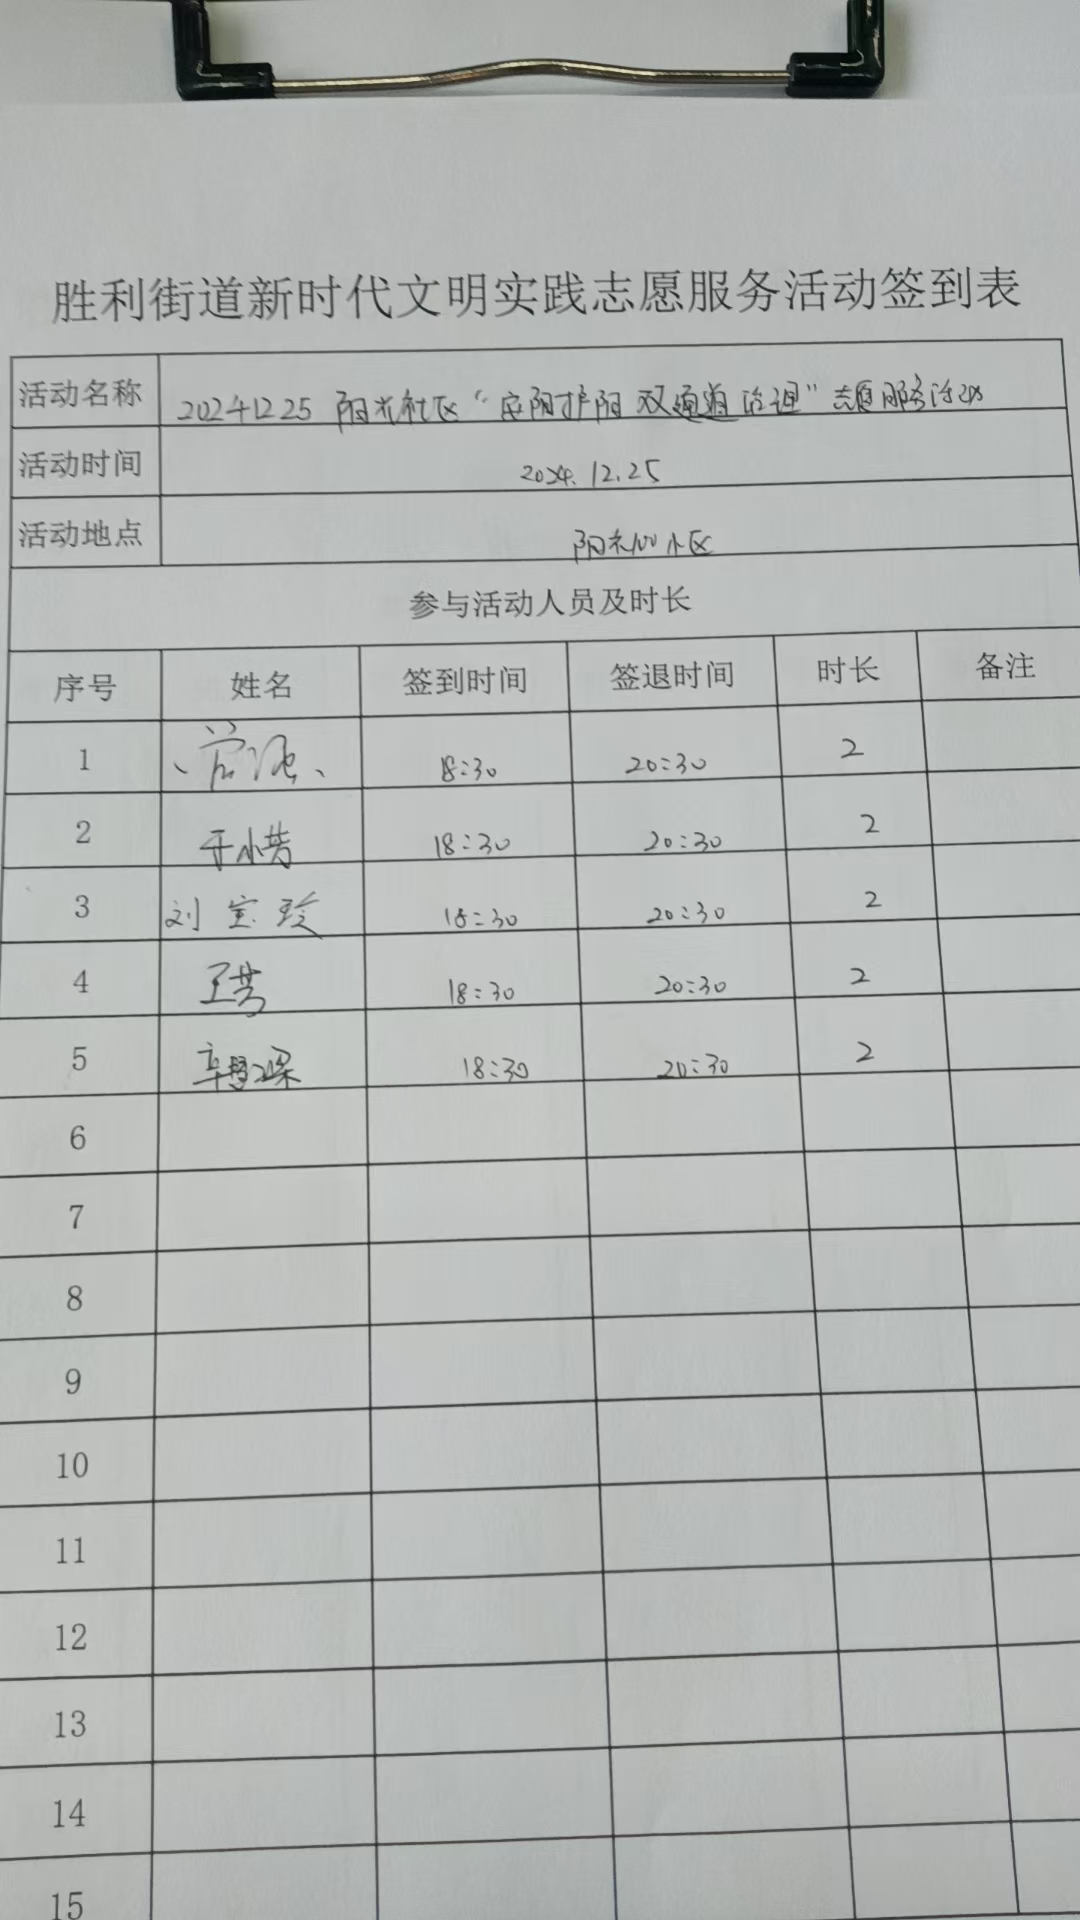 胜利街道新时代文明实践志愿服务活动签到表
活动名称 20241225 阳光社区“应阳护阳 双通道治理”志愿服务活动
活动时间 2024.12.25
活动地点 阳光100小区
参与活动人员及时长
序号 姓名 签到时间 签退时间 时长 备注
1 18:30 20:30 2
2 于小芳 18:30 20:30 2
3 刘宝珍 18:30 20:30 2
4 王芳 18:30 20:30 2
5 18:30 20:30 2
6
7
8
9
10
11
12
13
14
15